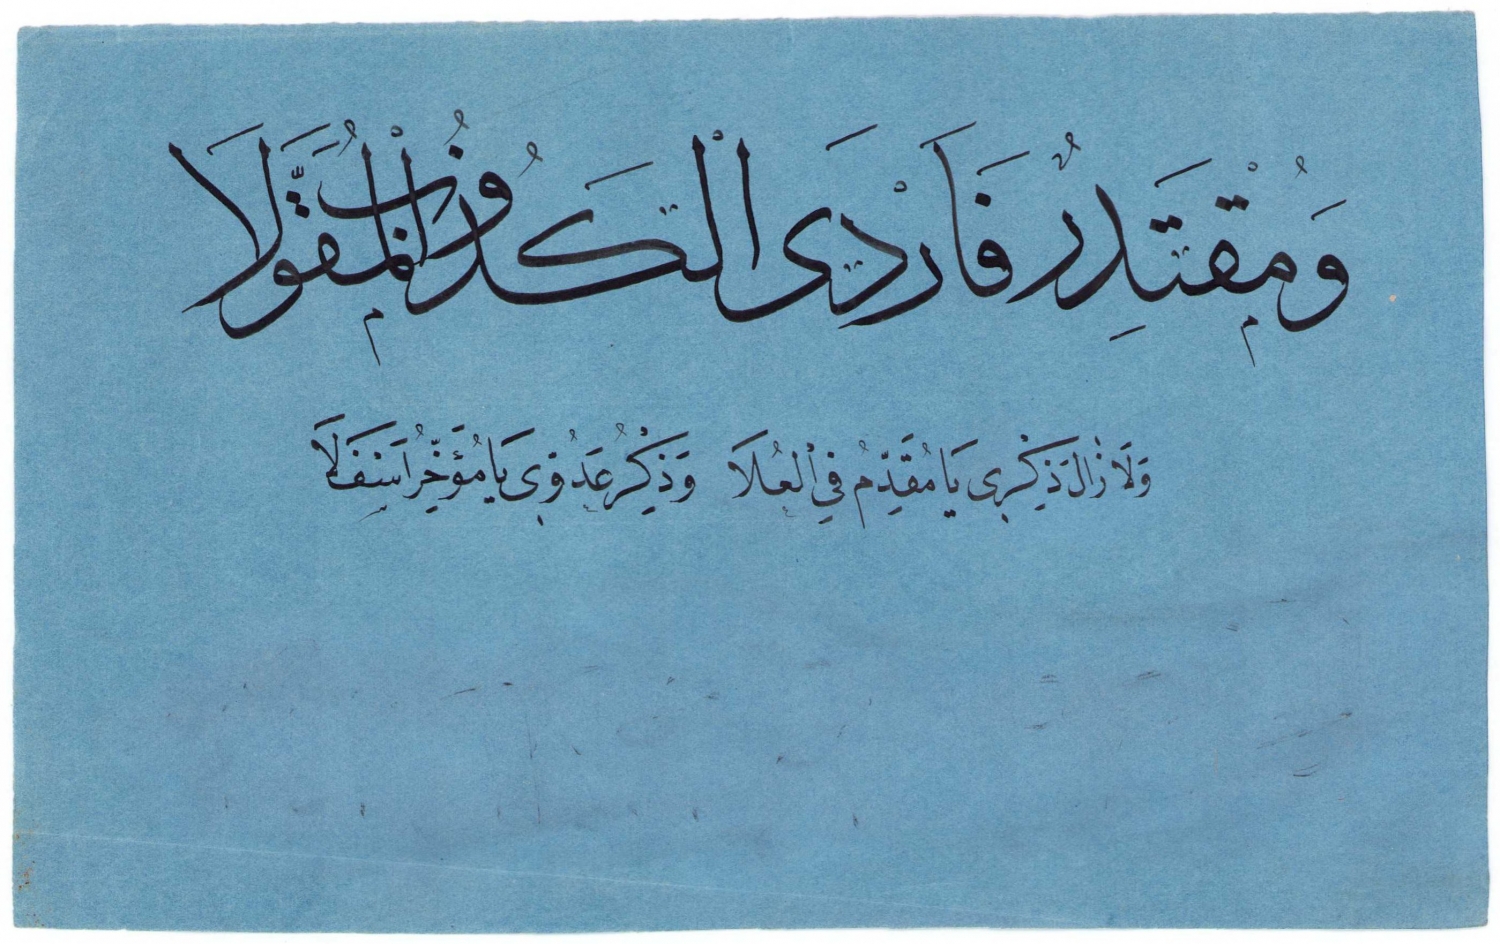 وَمُقْتَدِرٌ فَاَرْدَى الْكَذُوبَ الْمُقَوَّلَا
وَلَا زَالَ ذِكْرِى يَا مُقَدِّمُ فِي الْعُلَا وَذِكْرُ عَدُوِّى يَا مُؤَخِّرُ اَسْفَلَا